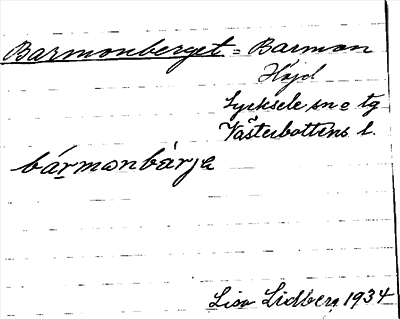 Barmonberget = Barmon
Höjd
Lycksele sn o tg
Västerbottens l.
bármonbàrja
Lisa Lidberg 1934